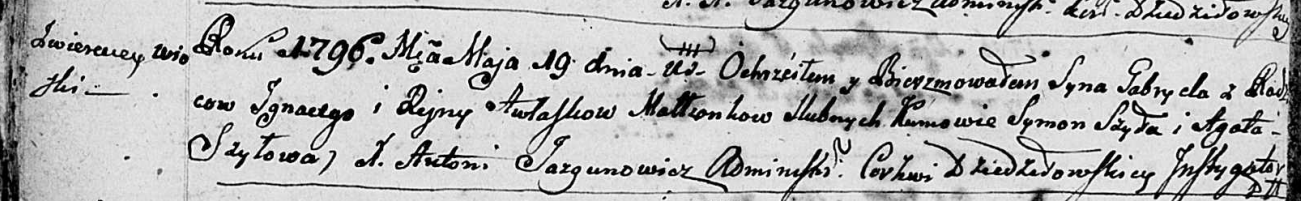 X. A. Jazgunowicz Administ. Cerk. Dziedziłowskiey
Zwierzewey wio
ski
Roku 1796. Mca Maja 19 dnia Ochrzciłem y Bierzmowałem Syna Gabryela z Rodz
cow Ignacego i Rejny Awłaskow Małżonkow slubnych. Kumowie Symon Szyła i Agata
Szyłowa, X. Antoni Jazgunowicz Administ. Cerkwi Dziedziłowskiey Instygator